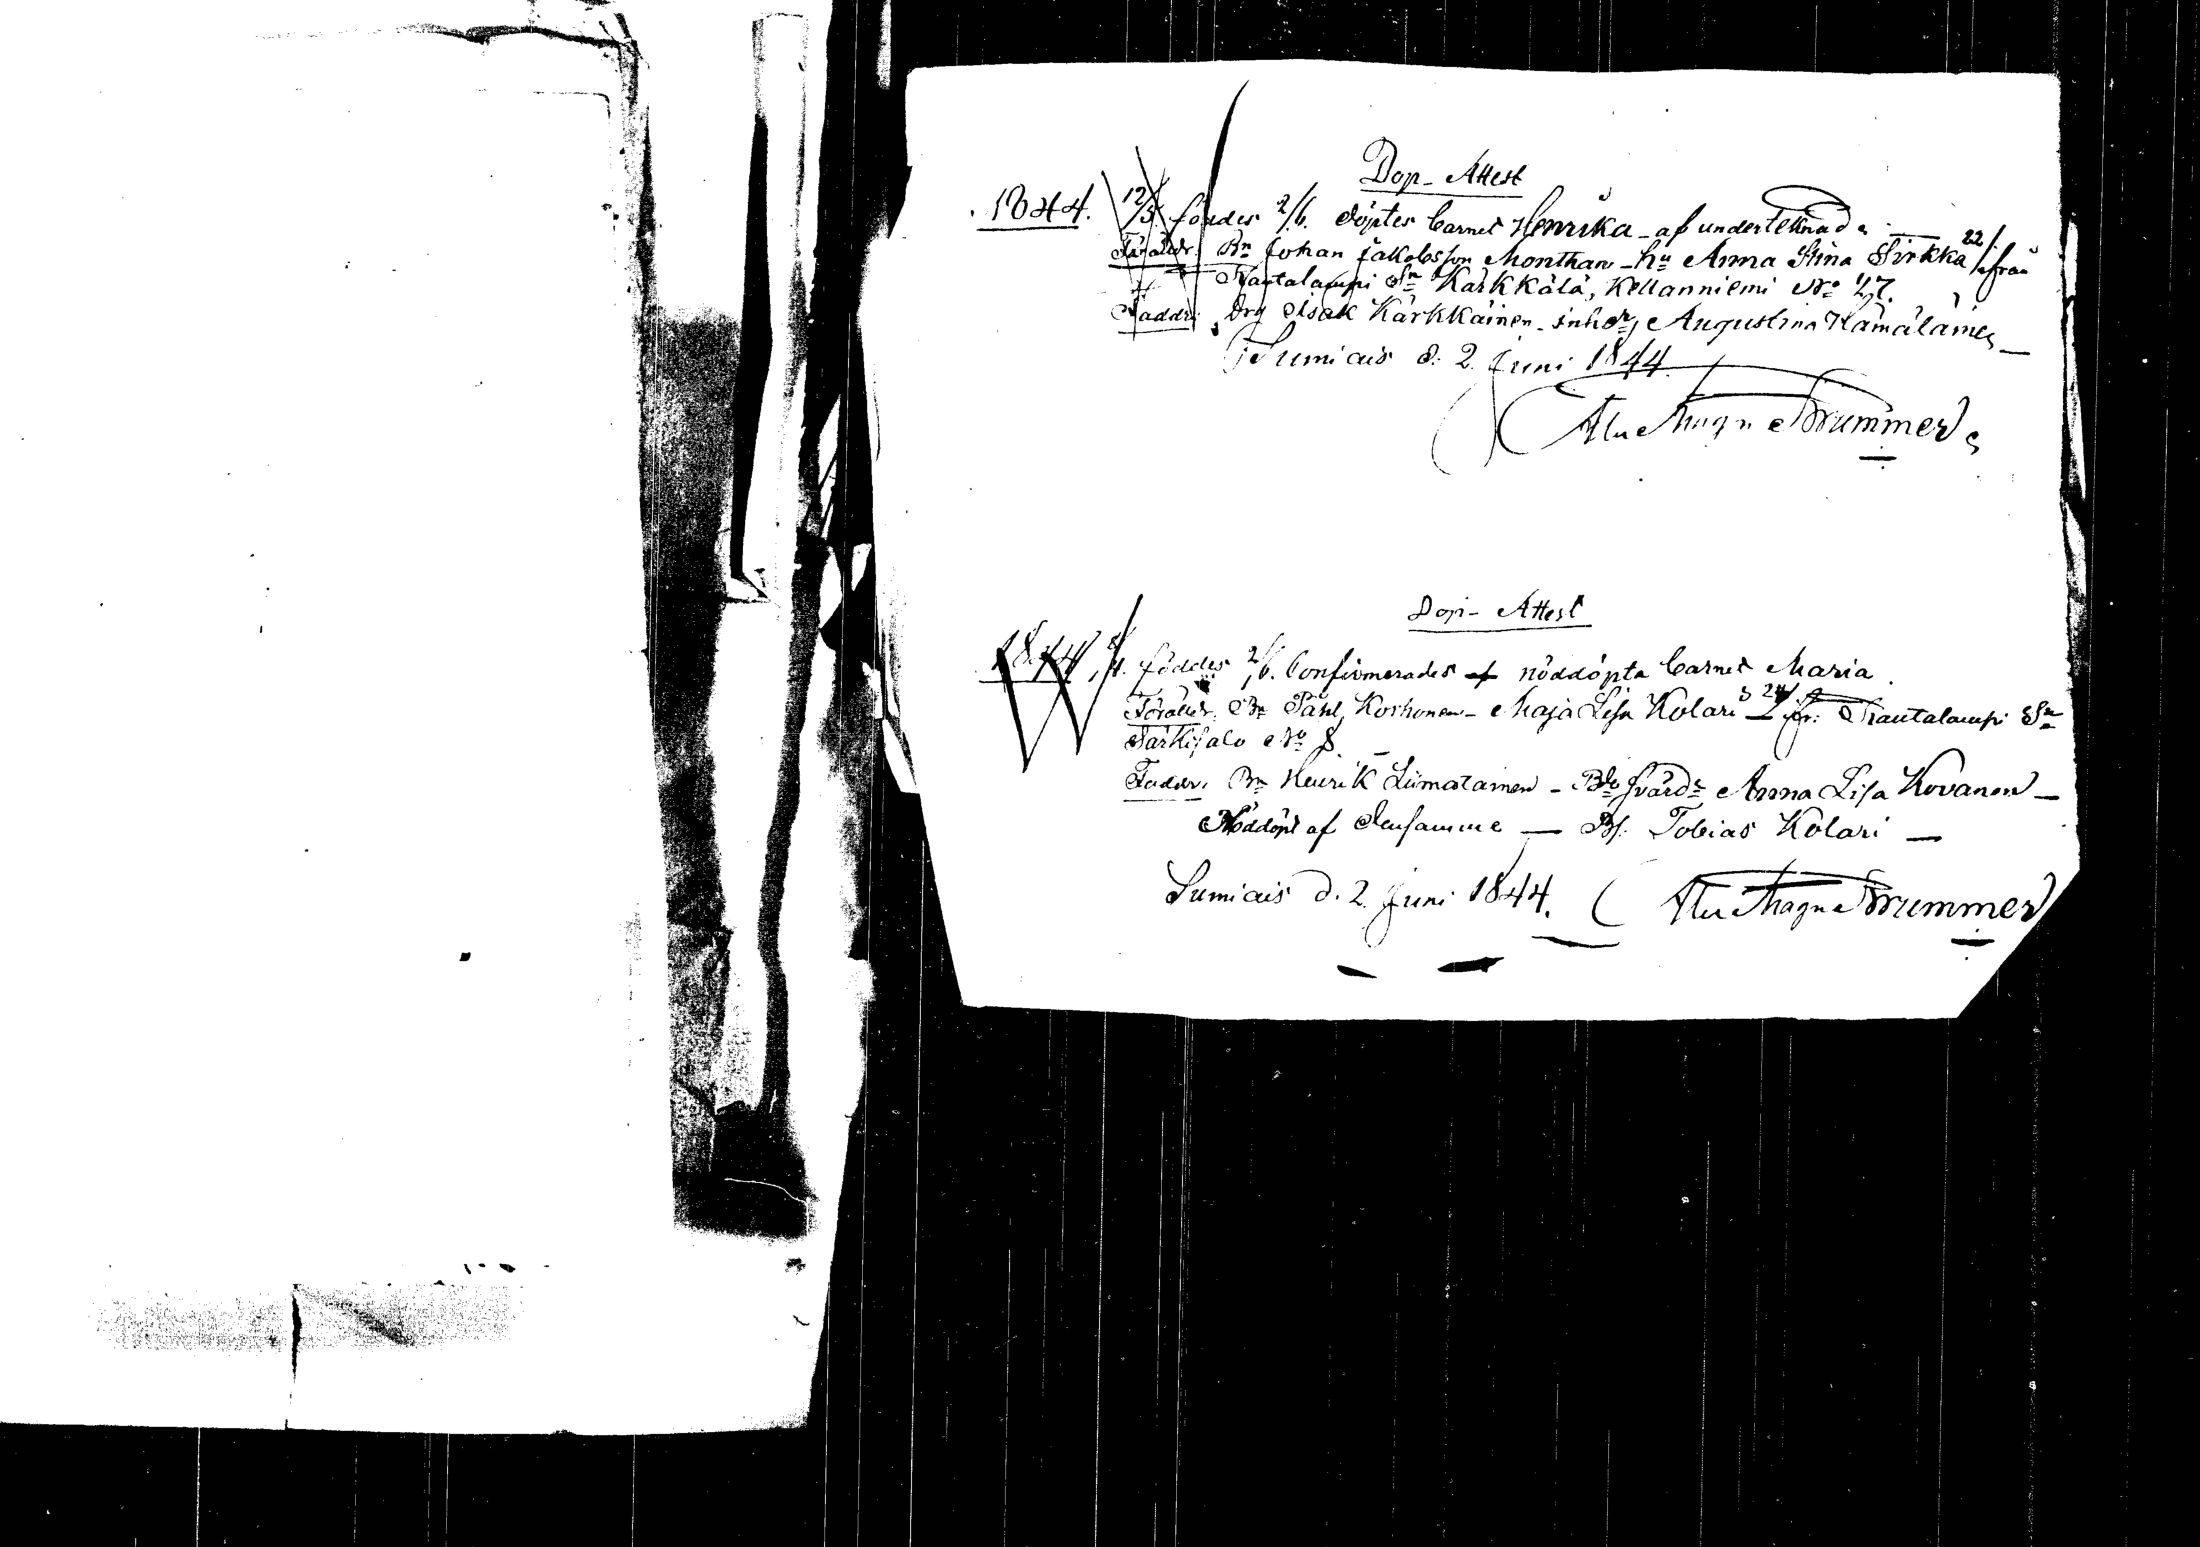 Dop- Attest
1844. 12/5. föddes 2/6. döptes barnet Henrika - af underteknad
Föräldr. Bn Johan Jakobsson Monthan - hu Anna Stina Sirkka 22/ från
Rautalampi Sn Kärkkälä, Kellanniemi No 27.
Faddr. Drg Isak Kärkkäinen - inh Augustina Hämäläinen
Sumiais d. 2. Juni 1844
Magn Brummer
Dop- Attest
1844, föddes 2/6. Confirmerades af nöddöpta barnet Maria
Föräldr. Bn Påhl Korhonen - Maja Lisa Kolari 24/ fr: Rautalampi Sn
Särkisalo No 8.
Faddr. Bn Henrik Liimatainen - Anna Lisa Kovanen -
Nöddöpt af - Bs: Tobias Kolari -
Sumiais d. 2. Juni 1844. Magn Brummer